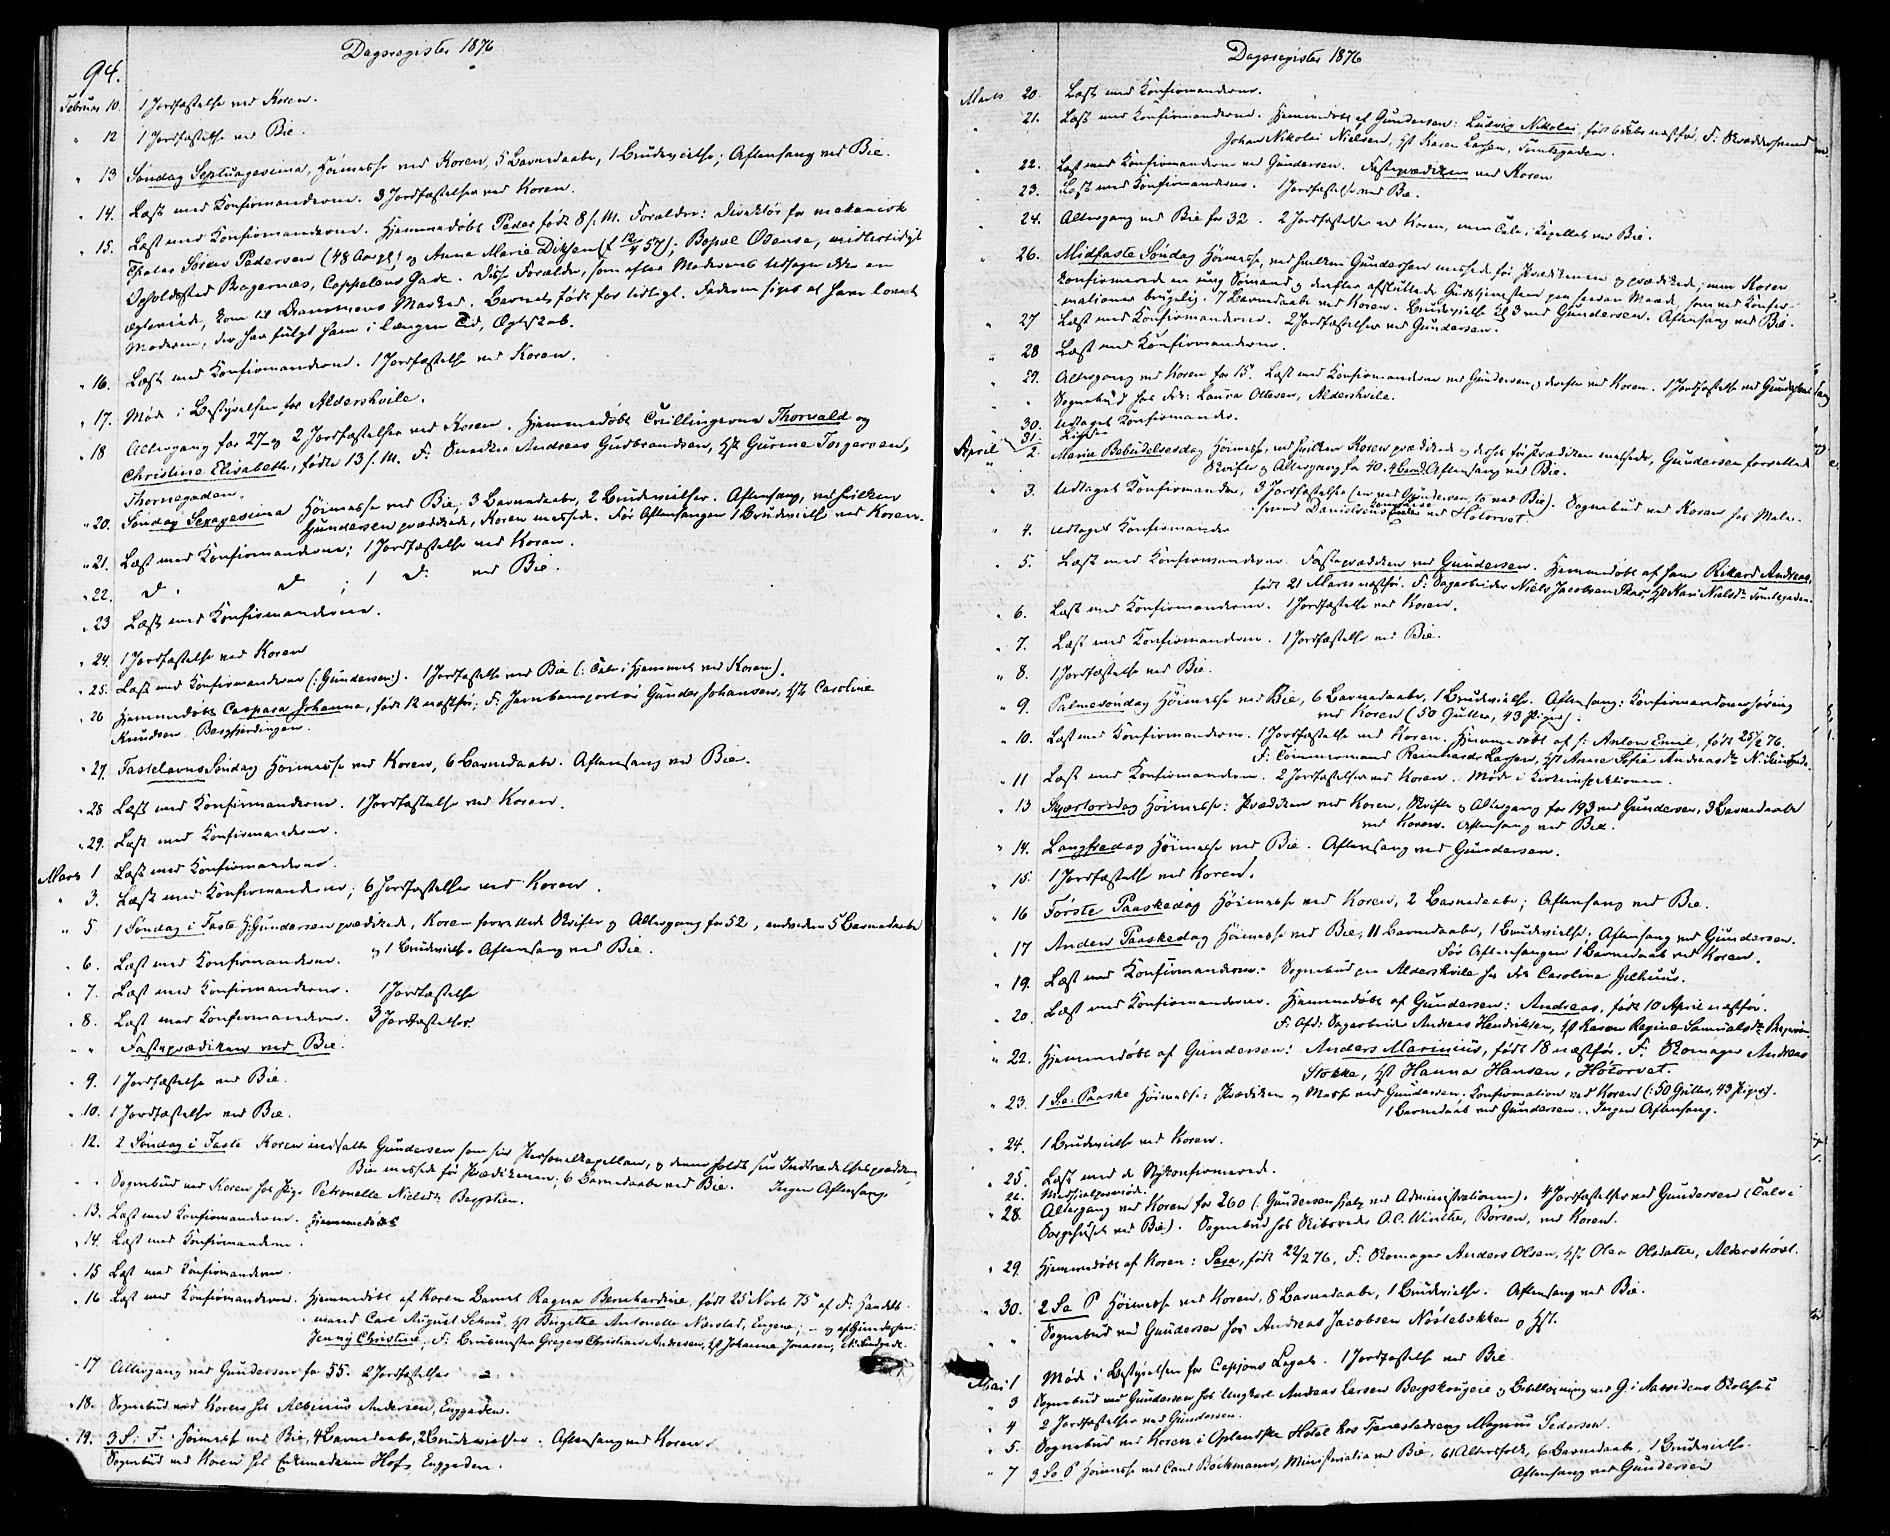 94.
Dagsregister 1876
Februar 10. 1 Jordfæstelse ved Koren.
" 12 1 Jordfæstelse ved Bie.
" 13 Søndag Septuagesima, Høimesse ved Koren, 5 Barnedaabe, 1 Brudevielse; Aftensang ved Bie.
" 14. Læst med Konfirmanderne. 3 Jordfæstelser ved Koren.
" 15. Læst med Konfirmanderne. Hjemmedøbt Peder født 8 f. M. Forældre: Direktør for mekanisk
Theater Søren Pedersen (48 Aar gl.) og Anna Marie (f 12/4 57); Bopæl Odense, midlertidigt
Opholdssted Bragernæs, Cappelens Gade. Disse Forældre, som efter Moderens Udsagn ikke ere
ægteviede, kom til Drammens Marked. Barnet født for tidligt. Faderen siges at have lovet
Moderen, der har fulgt ham i længere Tid, Ægteskab.
" 16. Læst med Konfirmanderne. 1 Jordfæstelse ved Koren.
" 17. Møde i Bestyrelsen for Aldershvile.
" 18 Altergang for 27 og 2 Jordfæstelser ved Koren. Hjemmedøbt Tvillingerne Thorvald og
Christine Elisabeth, fødte 13 f. M. F: Snedker Andreas Gudbrandsen, Hst Gurine Torgersen,
Thornegaden.
" 20. Søndag Sexagesima Høimesse ved Bie, 3 Barnedaabe, 2 Brudevielser. Aftensang, ved hvilken
Gundersen prædikede, Koren messede. Før Aftensangen 1 Brudevielse ved Koren.
" 21. Læst med Konfirmanderne; 1 Jordfæstelse ved Koren.
" 22. D. D. ; 1 D. ved Bie.
" 23 Læst med Konfirmanderne.
" 24. 1 Jordfæstelse ved Koren
" 25. Læst med Konfirmanderne (: Gundersen). 1 Jordfæstelse ved Bie (: Tale i Hjemmet ved Koren).
" 26 Hjemmedøbt Caspara Johanna, født 12 næstfør; F. Jernbaneportør Gunder Johansen, Hst Caroline
Knudsen Bergfjerdingen.
" 27. Fastelavns Søndag Høimesse ved Koren, 6 Barnedaabe. Aftensang ved Bie.
" 28 Læst med Konfirmanderne. 1 Jordfæstelse ved Koren.
" 29. Læst med Konfirmanderne.
Marts 1 Læst med Konfirmanderne.
" 3. Læst med Konfirmanderne; 6 Jordfæstelser ved Koren.
" 5 1 Søndag i Faste H. Gundersen prædikede, Koren forrettede Skrifte og Altergang for 52, endvidere 5 Barnedaabe
og 1 Brudevielse. Aftensang ved Bie.
" 6. Læst med Konfirmanderne.
" 7. Læst med Konfirmanderne. 1 Jordfæstelse
" 8. Læst med Konfirmanderne. 3 Jordfæstelser.
" " Fasteprædiken ved Bie.
" 9. 1 Jordfæstelse ved Bie.
" 10. 1 Jordfæstelse ved Bie.
" 12. 2 Søndag i Faste Koren indsatte Gundersen som sin Personelkapellan, og denne holdt sin Indtrædelsesprædiken,
Bie messede før Prædikenen; 6 Barnedaabe ved Bie. Ingen Aftensang.
" " Sognebud ved Koren hos Pige Petronelle Nielsd. Bergstien.
" 13. Læst med Konfirmanderne. Hjemmedøbt
" 14. Læst med Konfirmanderne.
" 15 Læst med Konfirmanderne.
" 16 Læst med Konfirmanderne. Hjemmedøbt af Koren Barnet Ragna Bernhardine, født 25 Novb 75 af F: Handels-
mand Carl August Schou, Hst Birgitte Antonette Nærstad, Engene; – og af Gundersen:
Jenny Christine, F. Brusmester Gregers Christian Andresen, Hst Johanna Jonasen, N. Sundgade.
" 17 Altergang ved Gundersen for 55. 2 Jordfæstelser
" 18. Sognebud ved Koren hos Albinius Andersen, Enggaden.
" 19. 3 S: F. Høimesse ved Bie, 4 Barnedaabe, 2 Brudevielser. Aftensang ved Koren.
Sognebud ved Koren hos Enkemadam Hof, Enggaden.
Dagsregister 1876
Marts 20. Læst med Konfirmanderne.
21. Læst med Konfirmanderne. Hjemmedøbt af Gundersen: Ludvig Nikolai, født 6 Febr næstfør, F: Skræddersvend
Johan Nikolai Nielsen, Hst Karen Larsen, Tomtegaden.
22. Læst med Konfirmanderne ved Gundersen. Fasteprædiken ved Koren
23. Læst med Konfirmanderne. 1 Jordfæstelse ved Bie.
24. Altergang ved Bie for 32. 2 Jordfæstelser ved Koren, men Tale i Kapellet ved Bie.
26. Midfaste Søndag Høimesse, ved hvilken Gundersen messede før Prædikenen og prædikede; men Koren
konfirmerede en ung Sømand og derefter afsluttede Gudstjenesten paa saadan Maade, som ved Konfir-
mationer brugelig. 7 Barnedaabe ved Koren. Brudevielse til 3 ved Gundersen. Aftensang ved Bie.
" 27 Læst med Konfirmanderne. 2 Jordfæstelser ved Gundersen.
" 28 Læst med Konfirmanderne.
" 29. Altergang ved Koren for 15. Læst med Konfirmanderne ved Gundersen og derefter ved Koren. 1 Jordfæstelse ved Gundersen
" Sognebud hos Frk: Laura Ottesen, Aldershvile.
30. Udtaget Konfirmander.
31. Ligesaa
April 2. Maria Bebudelsesdag Høimesse, ved hvilken Koren prædikede og derhos før Prædiken messede, Gundersen forrettede
Skrifte og Altergang for 40. 4 Barnd. Aftensang ved Bie.
" 3. Udtaget Konfirmander, 3 Jordfæstelser (en ved Gundersen, to ved Bie). Sognebud ved Koren hos Maler-
svend Danielsens ved Høtorvet.
" 4. Udtaget Konfirmander
" 5. Læst med Konfirmanderne Fasteprædiken ved Gundersen. Hjemmedøbt af ham Rikard Andreas,
født 21 Marts næstfør. F: Sagarbeider Niels Jacobsen Skar, Hst Kari Nielsd. Tomtegaden.
" 6. Læst med Konfirmanderne. 1 Jordfæstelse ved Koren.
" 7. Læst med Konfirmanderne. 1 Jordfæstelse ved Bie.
" 8. 1 Jordfæstelse ved Bie.
" 9. Palmesøndag Høimesse ved Bie, 6 Barnedaabe, 1 Brudevielse. Aftensang: Konfirmandoverhøring
ved Koren (50 Gutter, 43 Piger).
" 10. Læst med Konfirmanderne. 1 Jordfæstelse ved Koren. Hjemmedøbt af s: Anton Emil, født 25/2 76.
F: Tømmermand Reinhardt Larsen, Hst Anne Sofie Andreasd. N. Sundgade.
" 11 Læst med Konfirmanderne. 2 Jordfæstelser ved Koren. Møde i Kirkeinspektionen.
" 13 Skjærtorsdag Høimesse: Prædiken ved Koren, Skrifte og Altergang for 193 ved Gundersen, 3 Barnedaabe
ved Koren. Aftensang ved Bie.
" 14. Langfredag Høimesse ved Bie. Aftensang ved Gundersen.
" 15. 1 Jordfæstelse ved Koren.
" 16 Første Paaskedag Høimesse ved Koren, 2 Barnedaabe; Aftensang ved Bie.
" 17 Anden Paaskedag Høimesse ved Bie, 11 Barnedaabe, 1 Brudevielse. Aftensang ved Gundersen.
Før Aftensangen 1 Barnedaab ved Koren.
" 19. Læst med Konfirmanderne. Sognebud paa Aldershvile hos Frk Caroline Gilhuus.
" 20. Læst med Konfirmanderne. Hjemmedøbt af Gundersen: Andreas, født 10 April næstfør.
F. Afd: Sagarbeider Andreas Hendriksen, Hst Karen Regine Samuelsd.
" 22. Hjemmedøbt af Gundersen: Anders Marinius, født 18 næstfør. F. Skomager Andreas
Stokke, Hst Hanna Hansen, Høtorvet.
" 23. 1 Sø: Paaske Høimesse: Prædiken og Messe ved Gundersen. Konfirmation ved Koren (: 50 Gutter, 43 Piger).
1 Barnedaab ved Gundersen. Ingen Aftensang.
" 24. 1 Brudevielse ved Koren.
" 25. Læst med de Nykonfirmerede.
26.
" 28. Altergang ved Koren for 260 (: Gundersen hjalp ved Administrationen). 4 Jordfæstelser ved Gundersen (Tale i
Sørgehuset ved Bie). Sognebud hos A.C. Winthe, Børsen, ved Koren.
" 29. Hjemmedøbt af Koren: Sara, født 22/2 76, F: Skomager Anders Olsen, Hst Olea Olsdatter,
" 30. 2 Sø P Høimesse ved Koren, 8 Barnedaabe, 1 Brudevielse. Aftensang ved Bie.
" Sognebud ved Gundersen hos Andreas Jacobsen Nøstebakken og Hst.
Mai 1 Møde i Bestyrelsen for Legat. 1 Jordfæstelse ved Bie
" 3 Sognebud ved Gundersen hos Ungkarl Andreas Larsen Bergskougeie og Bibellæsning ved G. i Aassidens Skolehus
" 4 2 Jordfæstelser ved Gundersen.
" 5. Sognebud ved Koren i Oplandske Hotel hos Tjenestedreng Magnus Pedersen.
" 7 3 Sø P Høimesse ved Cand Bøckmann, Ministerialia ved Bie, 61 Altersfolk, 6 Barnedaabe, 1 Brudevielse.
Aftensang ved Gundersen